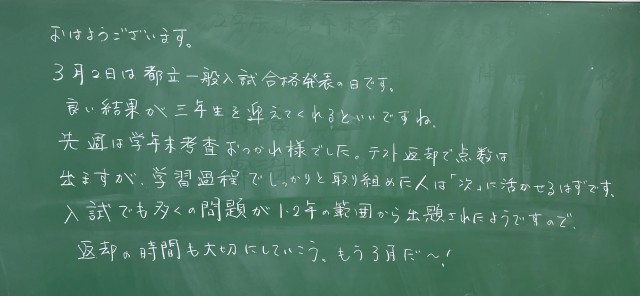 おはようございます。
3月2日は都立一般入試合格発表の日です。
良い結果が三年生を迎えてくれるといいですね。
先週は学年末考査おつかれ様でした。テスト返却で点数は
出ますが、学習過程でしっかりと取り組めた人は「次」に活かせるはずです。
入試でも多くの問題が1・2年の範囲から出題されたようですので、
返却の時間も大切にしていこう。もう3月だ〜!